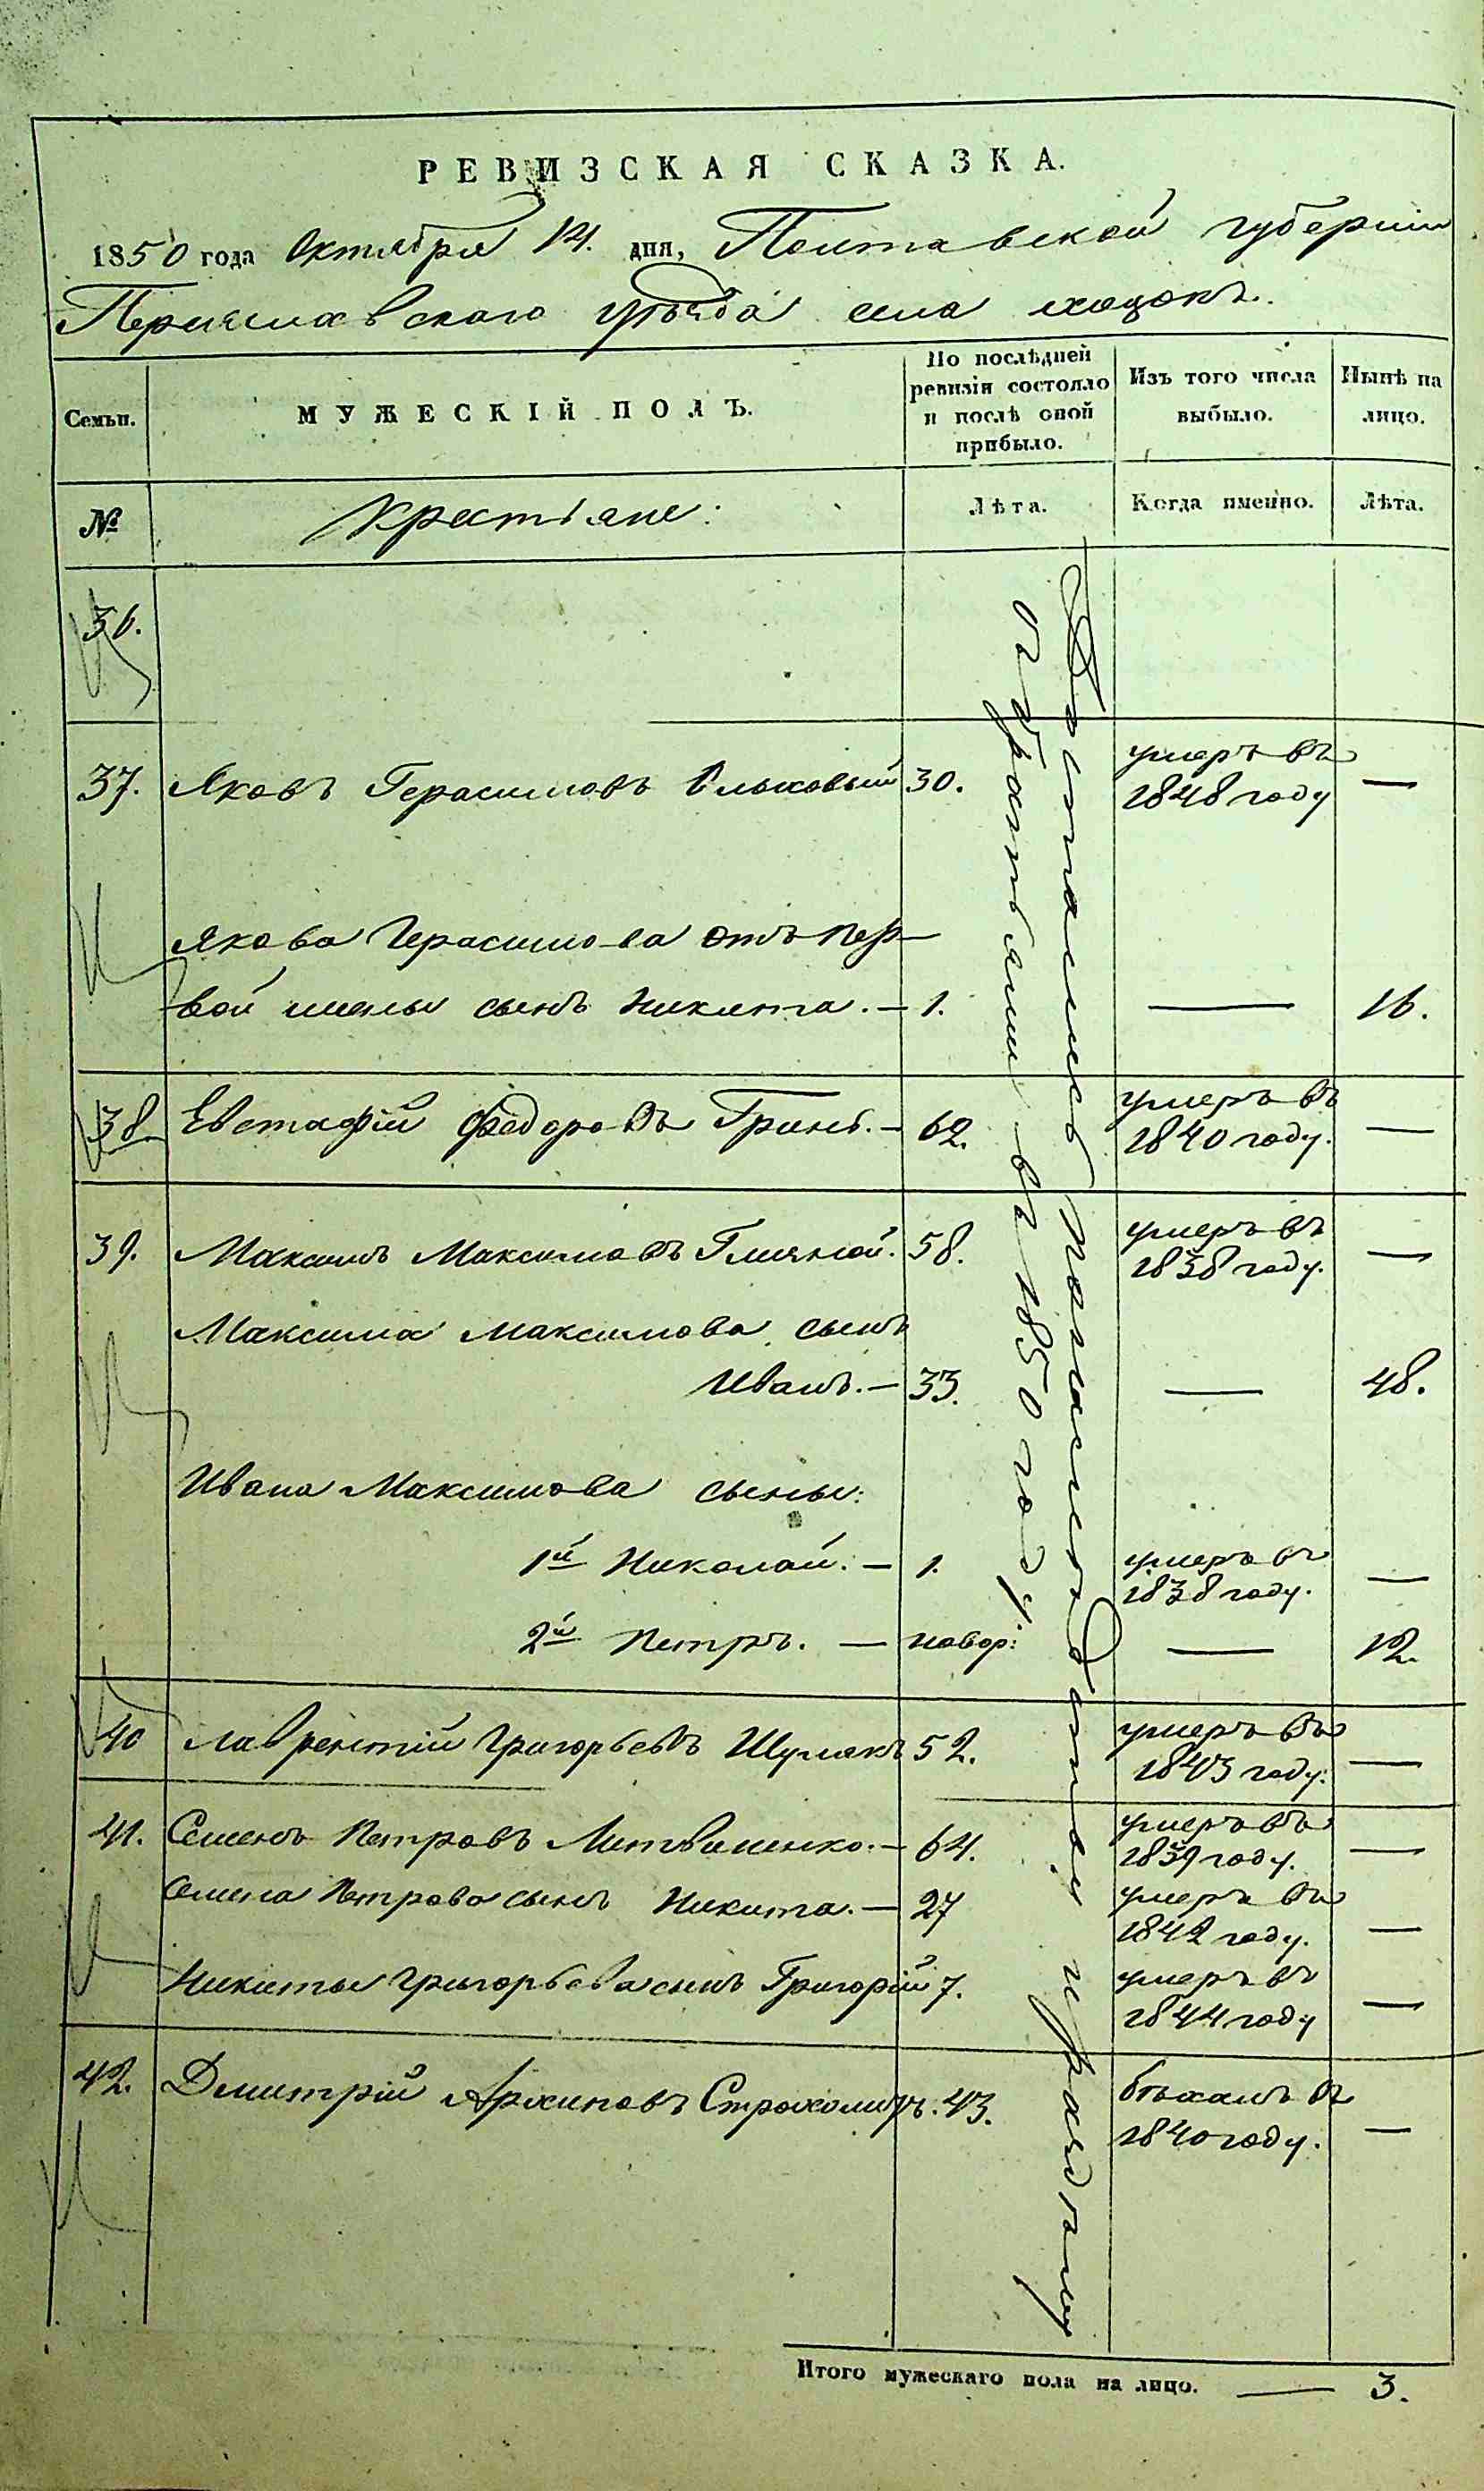 РЕВИЗСКАЯ СКАЗКА.
1850 года Октября 14. дня, Полтавской губернии
Переяславского уѣзда села хоцокъ.
Семьи.
МУЖЕСКІЙ ПОЛЪ.
По послѣдней ревизіи состояло и послѣ оной прибыло.
Изъ того числа выбыло.
Нынѣ на лицо.
№
Крестьяне:
Лѣта.
Когда именно.
Лѣта.
36.
37. Яковъ Герасимовъ 30. умеръ въ 1848 году —
Якова Герасимова отъ пер-
вой жены сынъ Никита. — 1. — 16.
38. Евстафій Федоровъ Гринь. — 62. умеръ въ 1840 году. —
39. Максимъ Максимовъ 58. умеръ въ 1838 году. —
Максима Максимова сынъ
Иванъ. — 33. — 48.
Ивана Максимова сыны:
1й Николай. — 1. умеръ въ 1838 году. —
2й Петръ. — новор: — 12.
40 Лаврентій Григорьевъ Шулякъ 52. умеръ въ 1843 году. —
41. Семенъ Петровъ Литвиненко. — 64. умеръ въ 1839 году. —
Семена Петрова сынъ Никита. — 27 умеръ въ 1842 году. —
Никиты Григорьева сынъ Григорій 7. умеръ въ 1844 году —
42. Дмитрій Архиповъ 43. бѣжалъ въ 1840 году. —
съ братьями въ 1850 году.
Итого мужескаго пола на лицо. — 3.